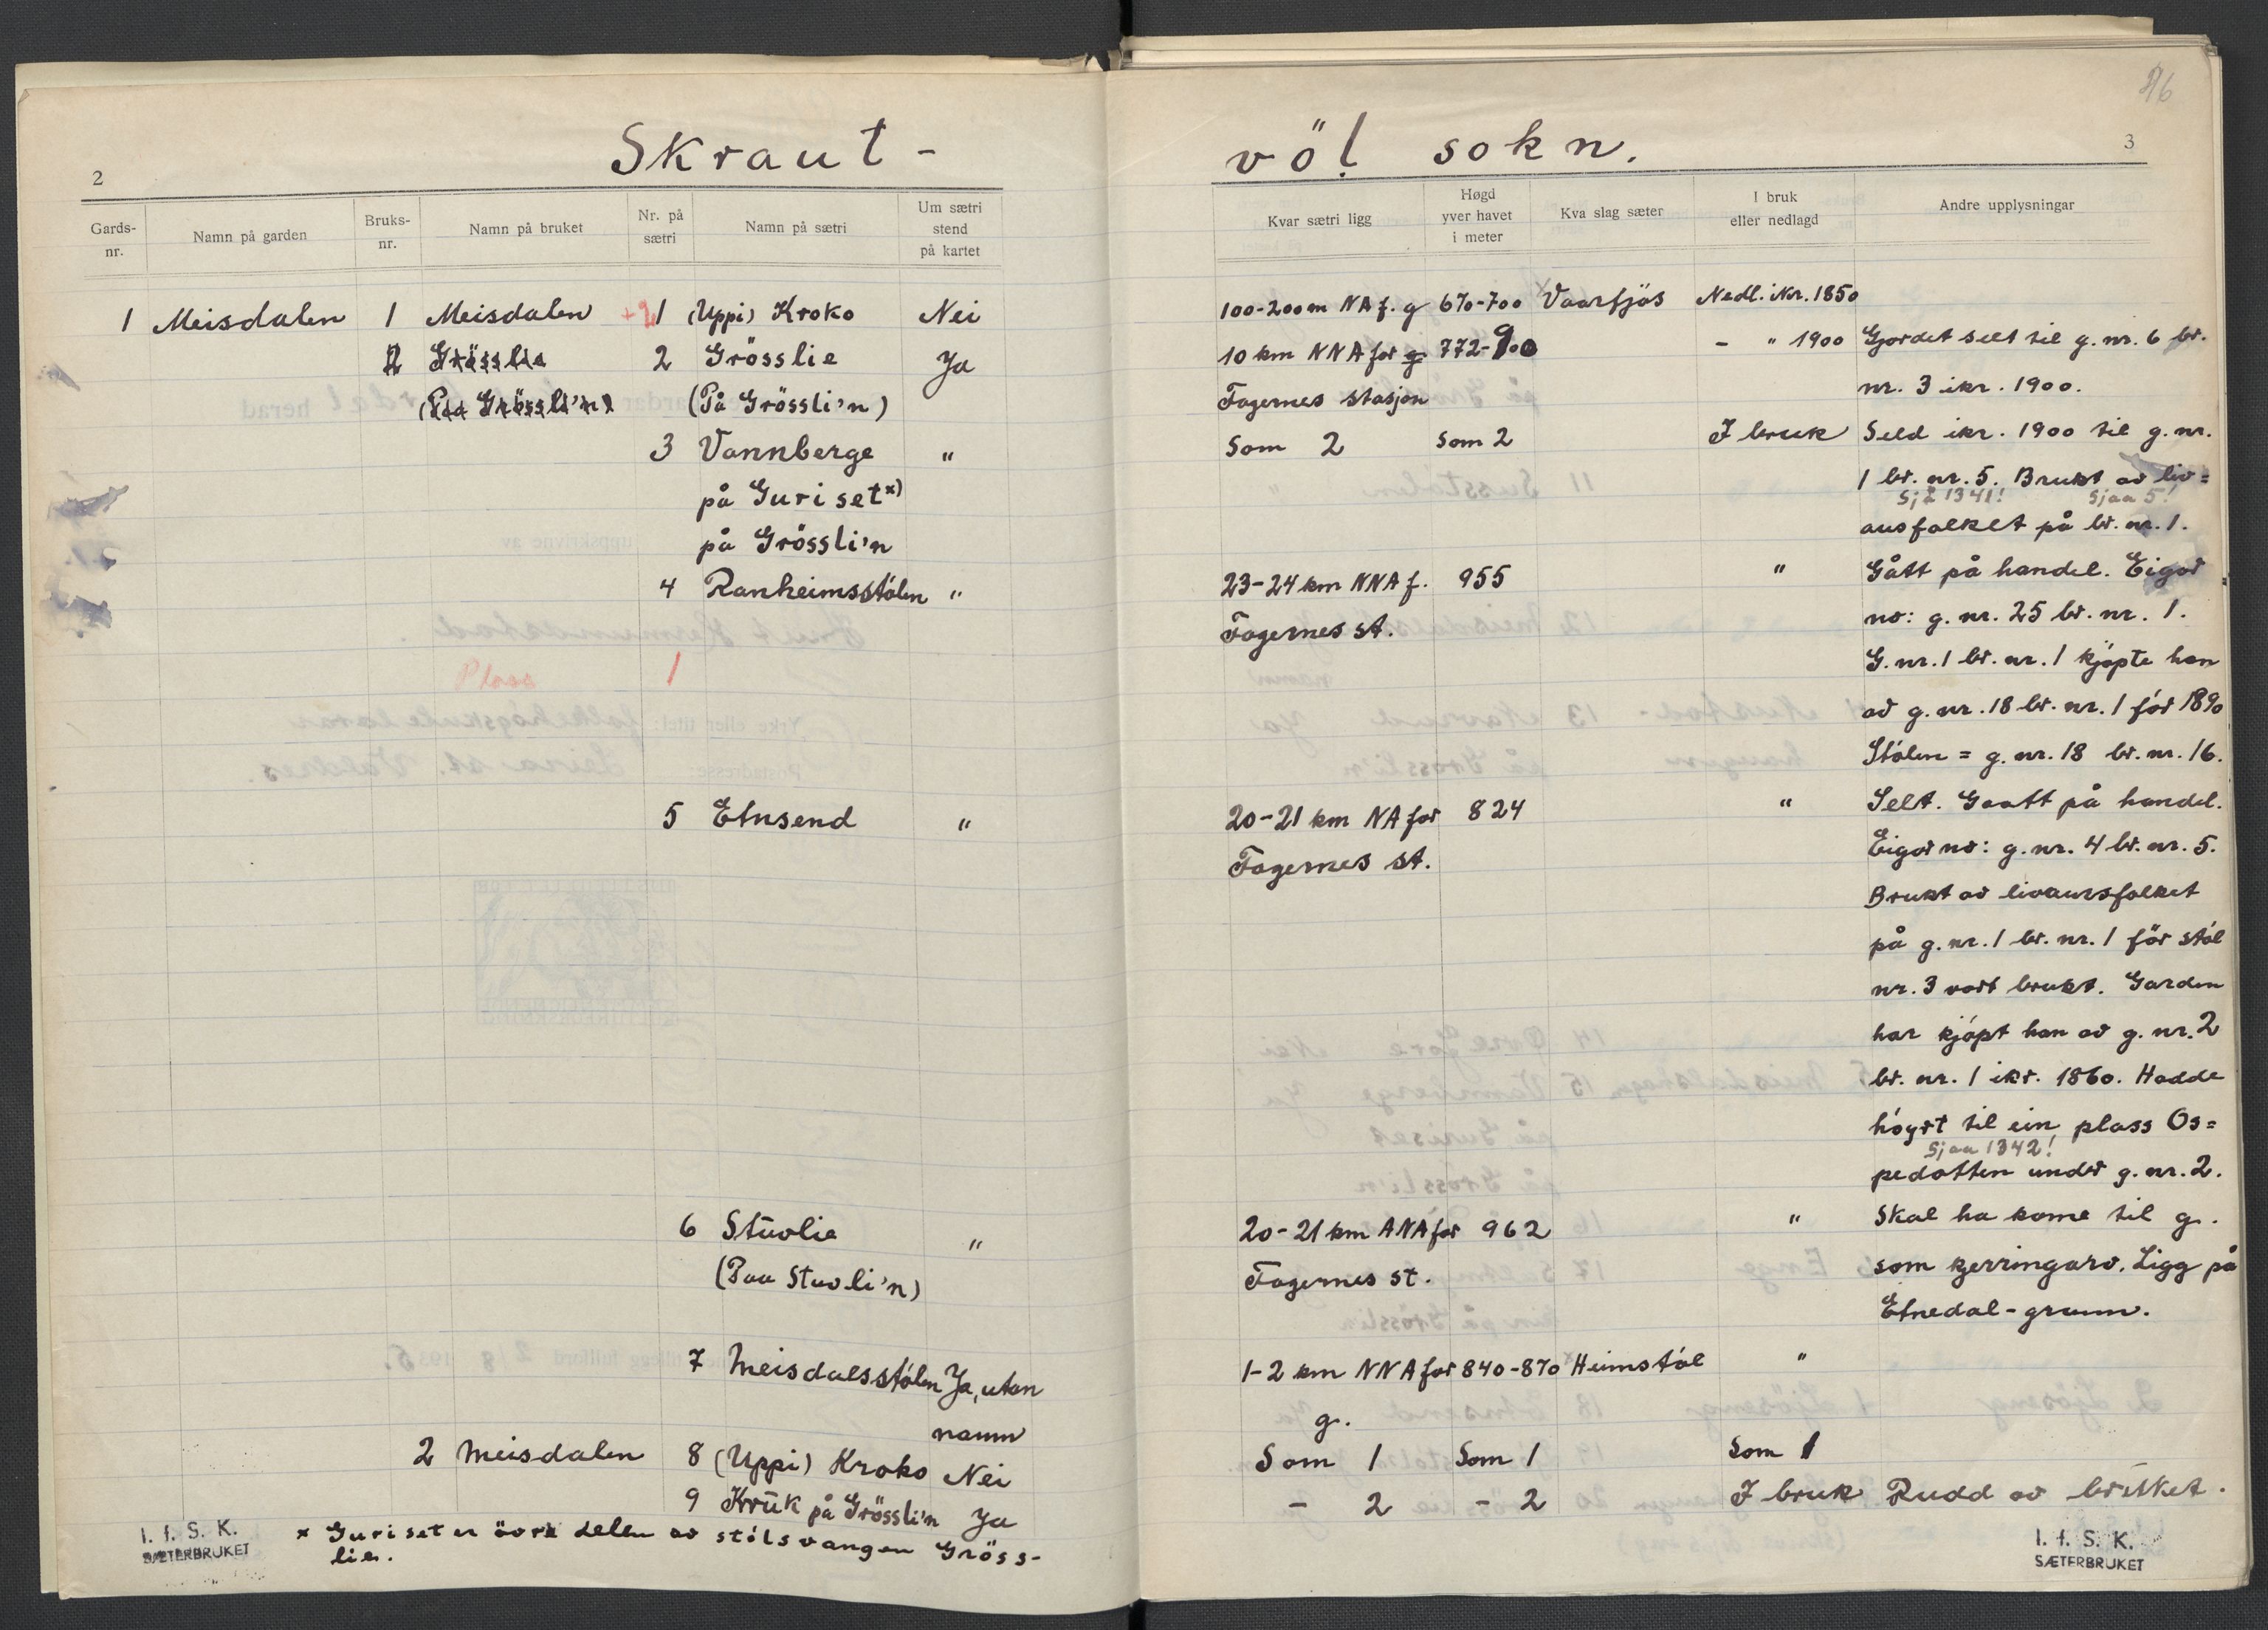 Skraut-
völ sokn.
2
3
Gards-
nr.
Namn på garden
Bruks-
nr.
Namn på bruket
Nr. på
sætri
Namn på sætri
Um sætri
stend
på kartet
Kvar sætri ligg
Høgd
yver havet
i meter
Kva slag sæter
I bruk
eller nedlagd
Andre upplysningar
1 Meisdalen 1 Meisdalen 1 (Uppi) Kroko Nei 100-200 m NA f. g 670-700 Vaarfjös Nedl. ikr. 1850
2 Grösslie 2 Grösslie Ja 10 km NNA for g 772-900 - " 1900 Gjordet selt til g. nr. 6 br.
(Paa Grössli'n) (På Grössli'n) Fagernes stasjon nr. 3 ikr. 1900.
3 Vannberge " Som 2 Som 2 I bruk Seld ikr. 1900 til g. nr.
på Guriset x) 1 br. nr. 5. Brukt av liv=
Sjå 1341! Sjaa 5!
på Grössli'n ausfolket på br. nr. 1.
4 Ranheimsstölen " 23-24 km NNA f. 955 " Gått på handel. Eigar
Fagernes st. no: g. nr. 25 br. nr. 1.
Plass 1 G. nr. 1 br. nr. 1 kjöpte han
av g. nr. 18 br. nr. 1 för 1890
Stölen = g. nr. 18 br. nr. 16.
5 Etnsend " 20-21 km NA for 824 " Selt. Gaatt på handel.
Fagernes st. Eigar no: g. nr. 4 br. nr. 5.
Brukt av livaursfolket
på g. nr. 1 br. nr. 1 för stöl
nr. 3 vart brukt. Garden
har kjöpt han av g. nr. 2
br. nr. 1 ikr. 1860. Hadde
höyrt til ein plass Os=
Sjaa 1342!
pedotten under g. nr. 2.
6 Stuvlie " 20-21 km ANA for 962 " Skal ha kome til g.
(Paa Stuvli'n) Fagernes st. som kjerringarv. Ligg på
Etnedal-grunn.
7 Meisdalsstölen Ja, utan 1-2 km NNA for 840-870 Heimstöl "
namn g.
2 Meisdalen 8 (Uppi) Kroko Nei Som 1 Som 1 Som 1
9 Kruk på Grössli'n Ja - 2 - 2 I bruk Rudd av bruket.
x Guriset er övre delen av stölsvangen Gröss-
lie.
I. f. S. K.
SÆTERBRUKET
I. f. S. K.
SÆTERBRUKET